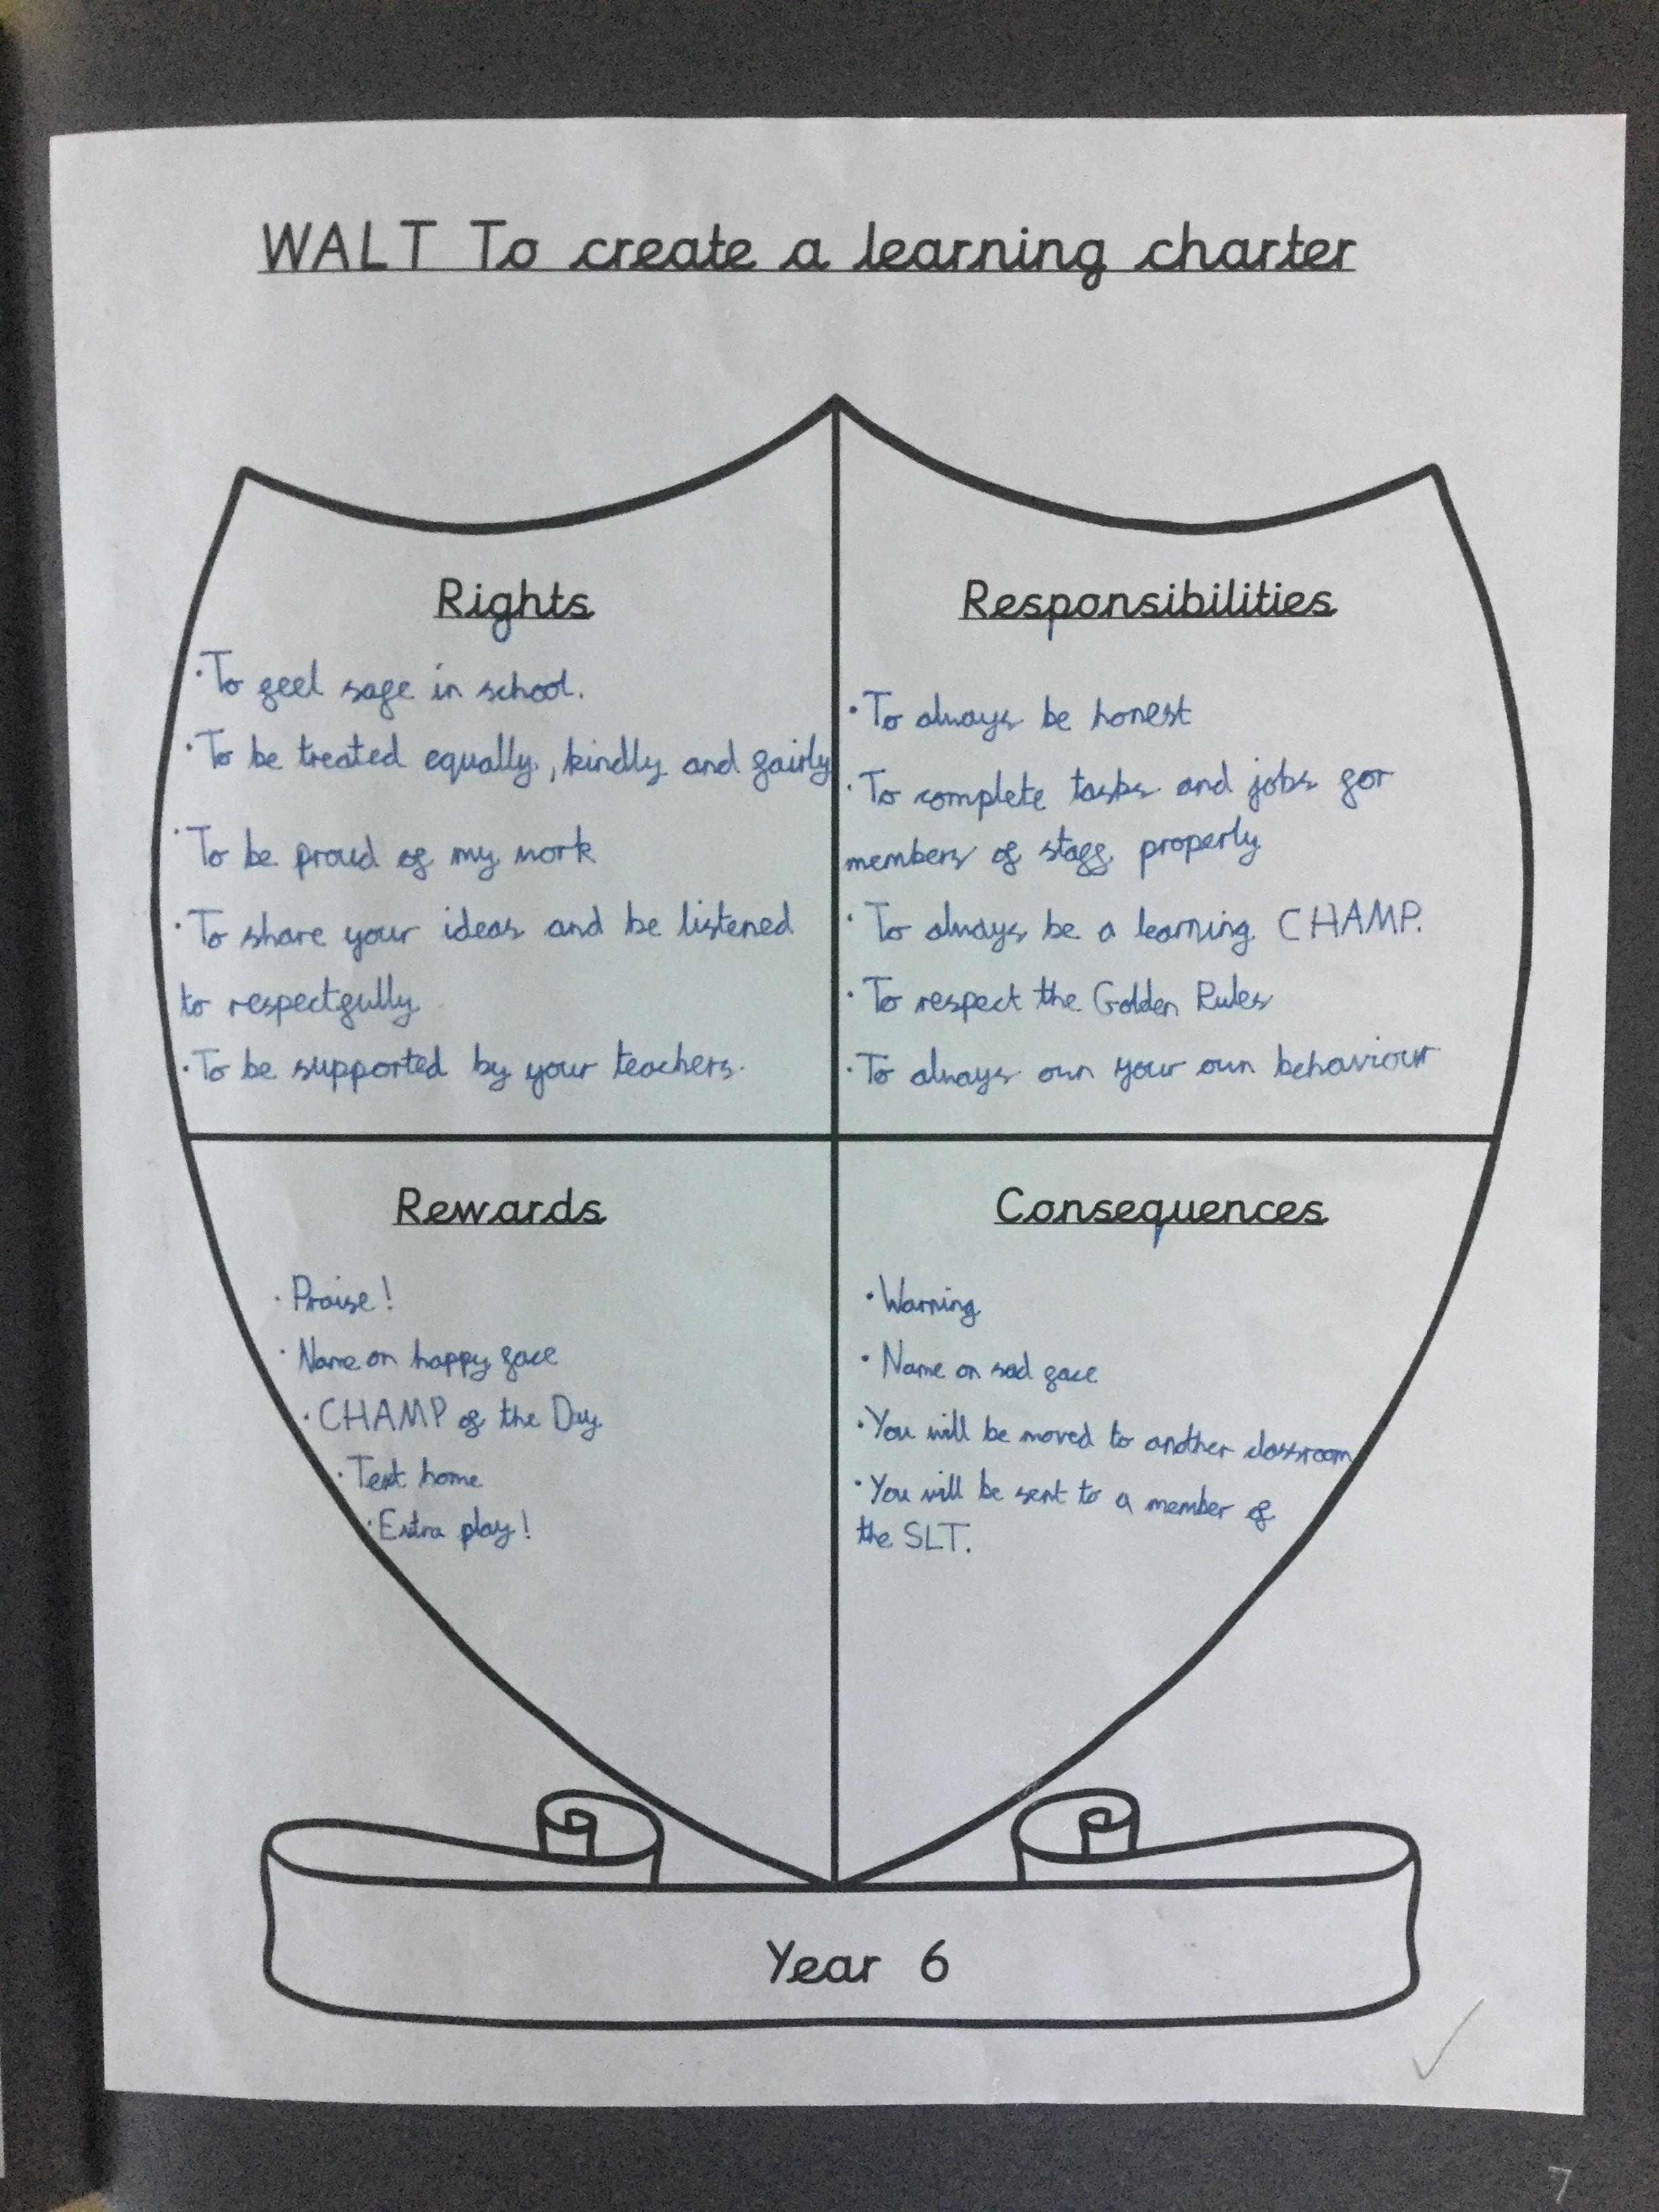 WALT To create a learning charter
Rights
· To feel safe in school.
· To be treated equally, kindly and fairly
· To be proud of my work
· To share your ideas and be listened
to respectfully
· To be supported by your teachers.
Responsibilities
· To always be honest
· To complete tasks and jobs for
members of staff properly
· To always be a learning CHAMP.
· To respect the Golden Rules
· To always own your own behaviour
Rewards
· Praise!
· Name on happy face
· CHAMP of the Day
· Text home
· Extra play!
Consequences
· Warning
· Name on sad face
· You will be moved to another classroom
· You will be sent to a member of
the SLT.
Year 6
7